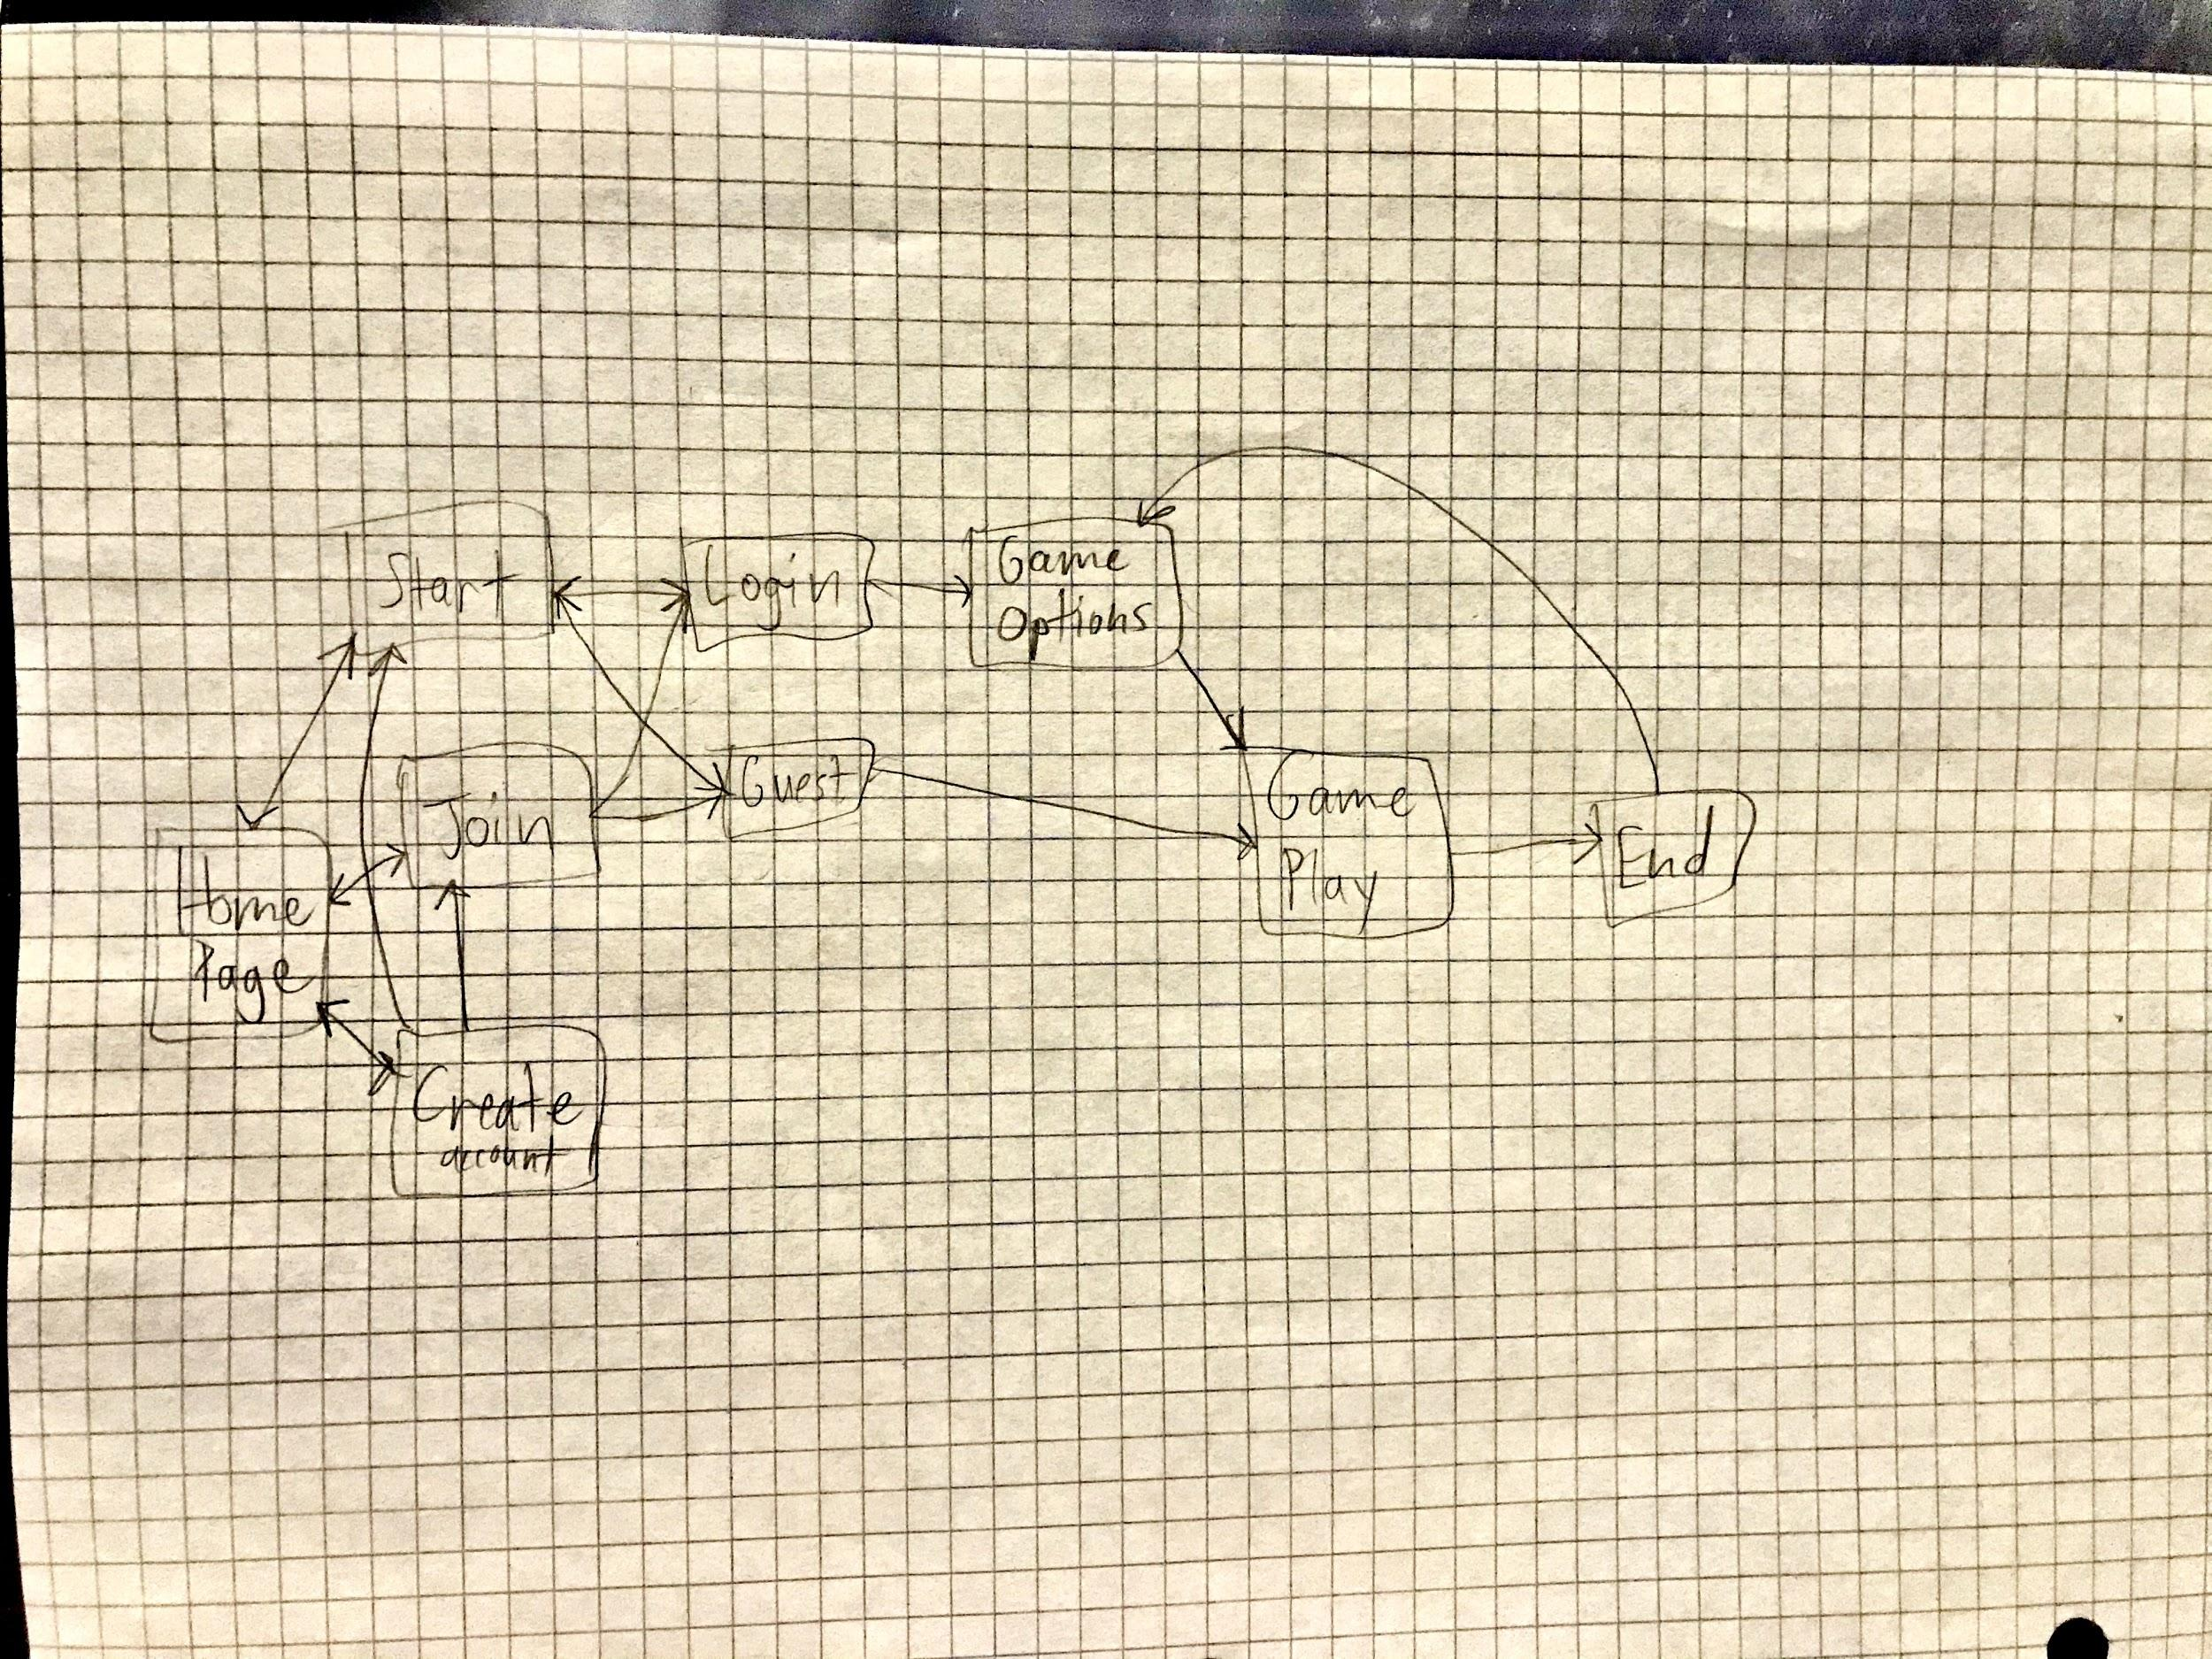 Start
Login
Game
Options
Join
Guest
Game
Play
End
Home
Page
Create
account